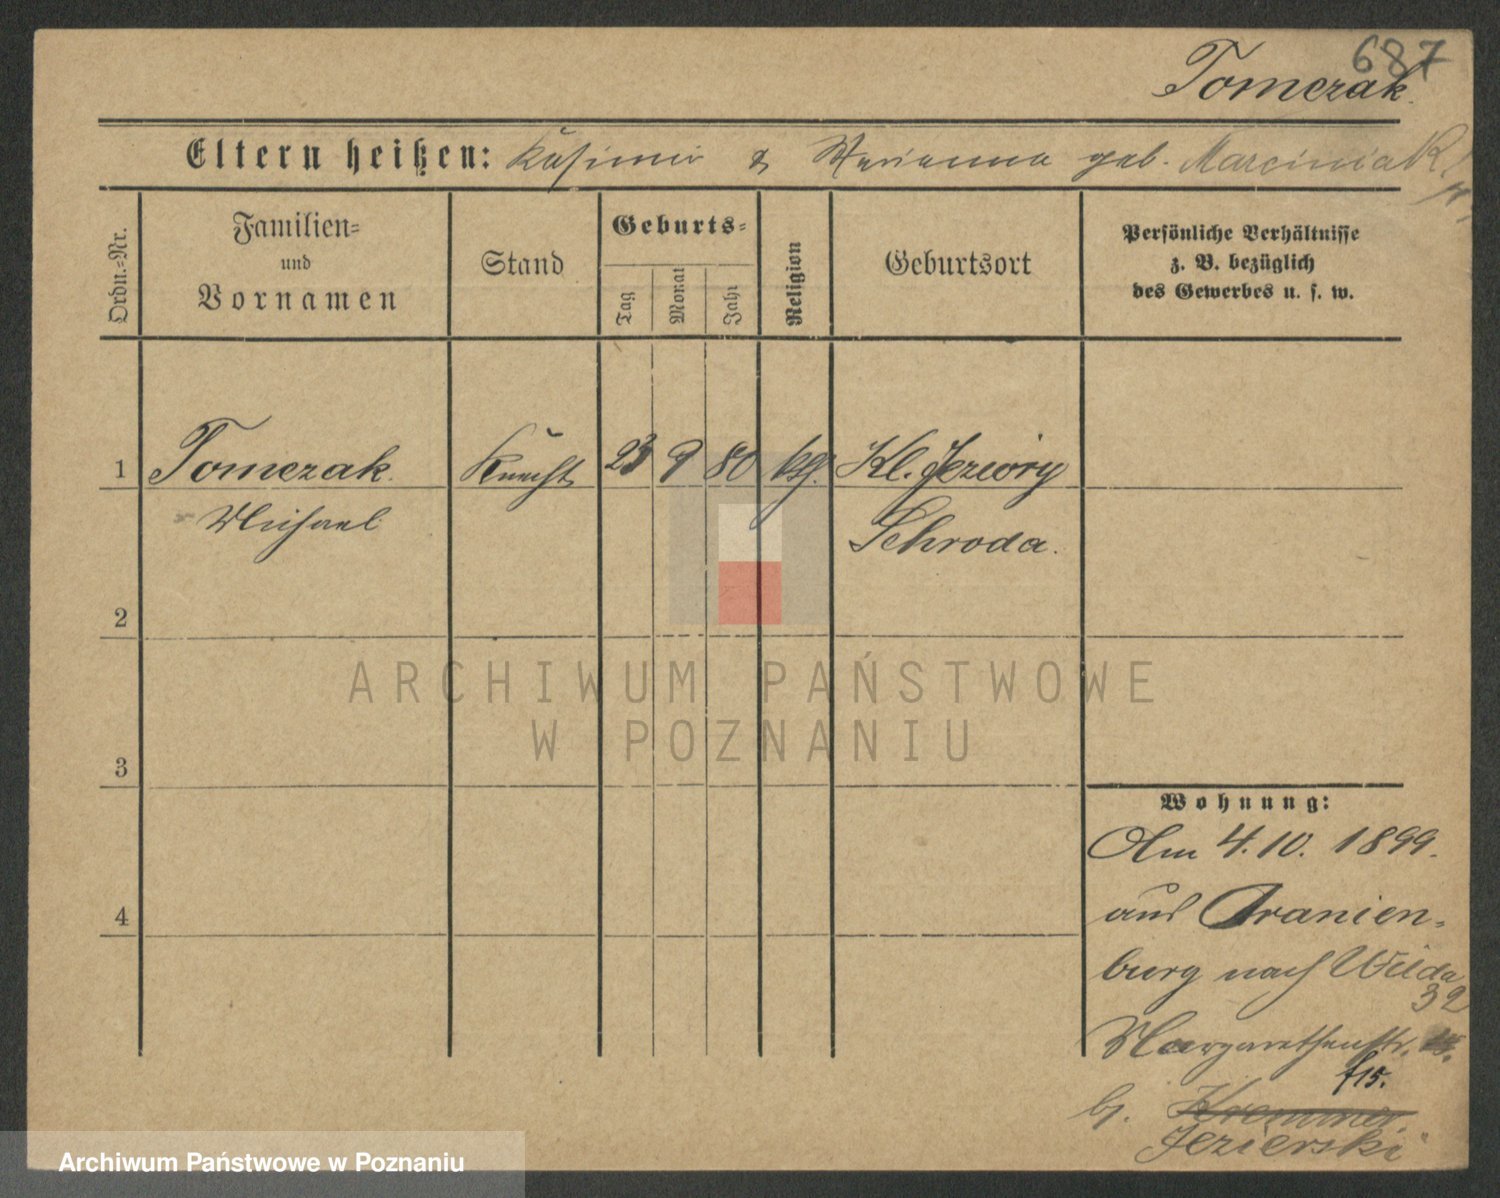 687
Tomczak.
Eltern heißen: Kasimir & Marianna geb. Marciniak
Ordn.-Nr.
Familien-
und
Vornamen
Stand
Geburts-
Tag
Monat
Jahr
Religion
Geburtsort
Persönliche Verhältnisse
z. B. bezüglich
des Gewerbes u. s. w.
1 Tomczak Knecht 23 9 80 kg. Kl. Jeziory
Michael Schroda.
2
3
4
Wohnung:
Am 4. 10. 1899.
aus Oranien-
burg nach Wilda
32
Margarethenstr.
15.
bj. Kremmer
Jezierski
ARCHIWUM PAŃSTWOWE
W POZNANIU
Archiwum Państwowe w Poznaniu